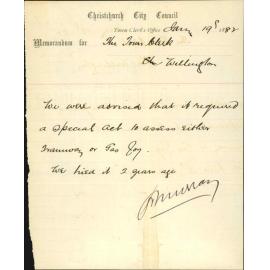 Christchurch City Council
Town Clerk's Office Jany 19th 1882
Memorandum for The Town Clerk
Wellington
We were advised that it required
a special act to assess either
Tramway or Gas Coy.
We tried it 2 years ago